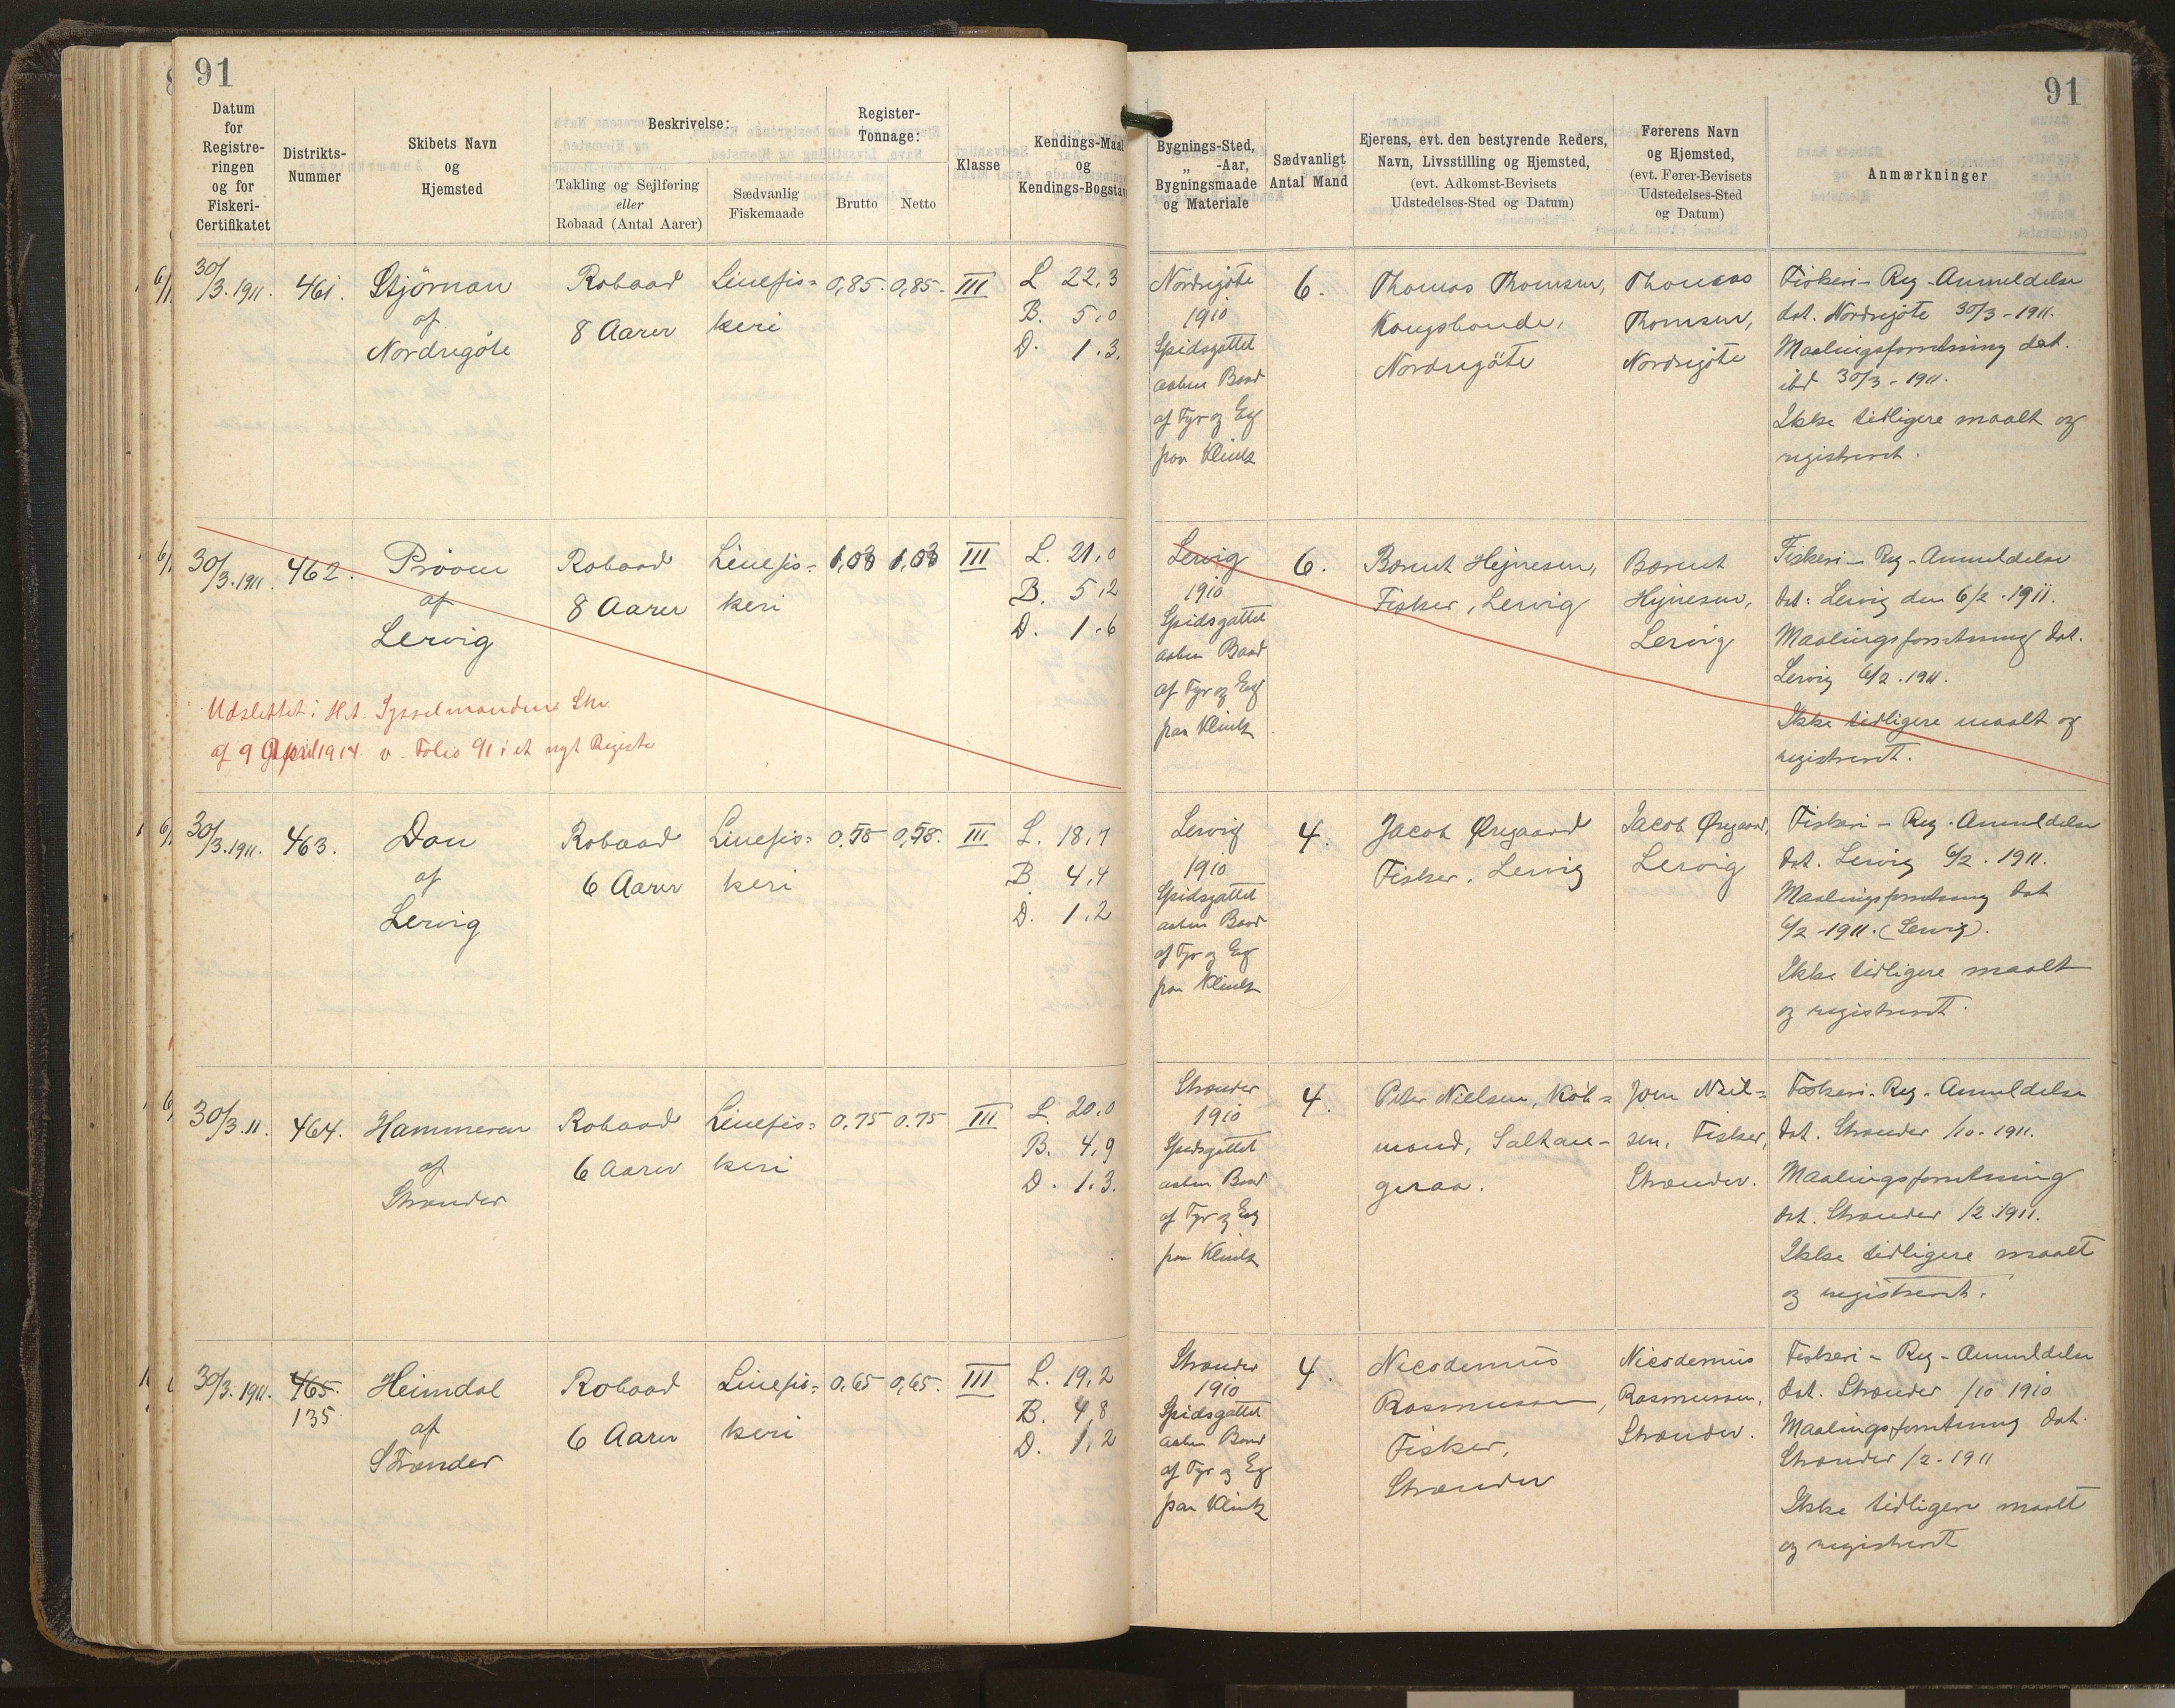 91
91
Datum
for
Registre-
ringen
og for
Fiskeri-
Certifikatet
Distrikts-
Nummer
Skibets Navn
og
Hjemsted
Beskrivelse:
Takling og Sejlføring
eller
Robaad (Antal Aarer)
Sædvanlig
Fiskemaade
Register-
Tonnage:
Brutto
Netto
Klasse
Kendings-Maal
og
Kendings-Bogstav
Bygnings-Sted,
„ -Aar,
Bygningsmaade
og Materiale
Sædvanligt
Antal Mand
Ejerens, evt. den bestyrende Reders,
Navn, Livsstilling og Hjemsted,
(evt. Adkomst-Bevisets
Udstedelses-Sted og Datum)
Førerens Navn
og Hjemsted,
(evt. Fører-Bevisets
Udstedelses-Sted
og Datum)
Anmærkninger
30/3.1911.
461.
Stjörnan
af
Nordregöte
Robaad
8 Aarer
Linefis=
keri
0,85.
0,85.
III
L 22,3
B. 5,0
D. 1.3.
Nordregöte
1910
Spidsgattet
aaben Baad
af Fyr og Eg
paa Klink
6.
Thomas Thomsen,
Kongsbonde,
Nordregöte
Thomas
Thomsen,
Nordregöte
Fiskeri-Reg-Anmeldelse
dat. Nordregöte 30/3-1911.
Maalingsforretning dat.
ibd 30/3-1911.
Ikke tidligere maalt og
registreret.
30/3.1911.
462.
Pröven
af
Lervig
Robaad
8 Aarer
Linefis=
keri
1,03
1,03
III
L. 21,0
B. 5,2
D. 1.6
Lervig
1910
Spidsgattet
aaben Baad
af Fyr og Eg
paa Klink
6.
Barent Hejnesen,
Fisker, Lervig
Barent
Hejnesen,
Lervig
Fiskeri-Reg-Anmeldelse
dat: Lervig den 6/2.1911.
Maalingsforretning dat.
Lervig 6/2.1911.
Ikke tidligere maalt og
registreret.
Udslettet i H.t. Sysselmandens Skr.
af 9 April 1914. v. Folio 91 i et nyt Register
30/3.1911.
463.
Dan
af
Lervig
Robaad
6 Aarer
Linefis=
keri
0,58
0,58.
III
L. 18,7
B. 4,4
D. 1,2
Lervig
1910
Spidsgattet
aaben Baad
af Fyr og Eg
paa Klink
4.
Jacob Øregaard
Fisker, Lervig
Jacob Øregaard,
Lervig
Fiskeri-Reg.-Anmeldelse
dat. Lervig 6/2.1911.
Maalingsforretning dat
6/2-1911. (Lervig).
Ikke tidligere maalt
og registreret.
30/3.11.
464.
Hammeren
af
Strænder
Robaad
6 Aarer
Linefis=
keri
0.75
0.75
III
L. 20,0
B. 4,9
D. 1.3.
Strænder
1910
Spidsgattet
aaben Baad
af Fyr og Eg
paa Klink
4.
Peter Nielsen, Köb=
mand, Saltan-
geraa.
Joen Niel=
sen, Fisker,
Strænder.
Fiskeri-Reg-Anmeldelse
dat. Strænder /10-1911.
Maalingsforretning
dat. Strænder /2.1911.
Ikke tidligere maalt
og registreret.
30/3.1911.
465.
135.
Heimdal
af
Strænder
Robaad
6 Aarer
Linefis=
keri
0,65
0,65.
III
L. 19,2
B. 4,8
D. 1,2
Strænder
1910
Spidsgattet
aaben Baad
af Fyr og Eg
paa Klink
4.
Nicodemus
Rasmussen,
Fisker,
Strænder
Nicodemus
Rasmussen,
Strænder.
Fiskeri-Reg-Anmeldelse
dat. Strænder /10 1910
Maalingsforretning dat.
Strænder /2-1911
Ikke tidligere maalt
og registreret